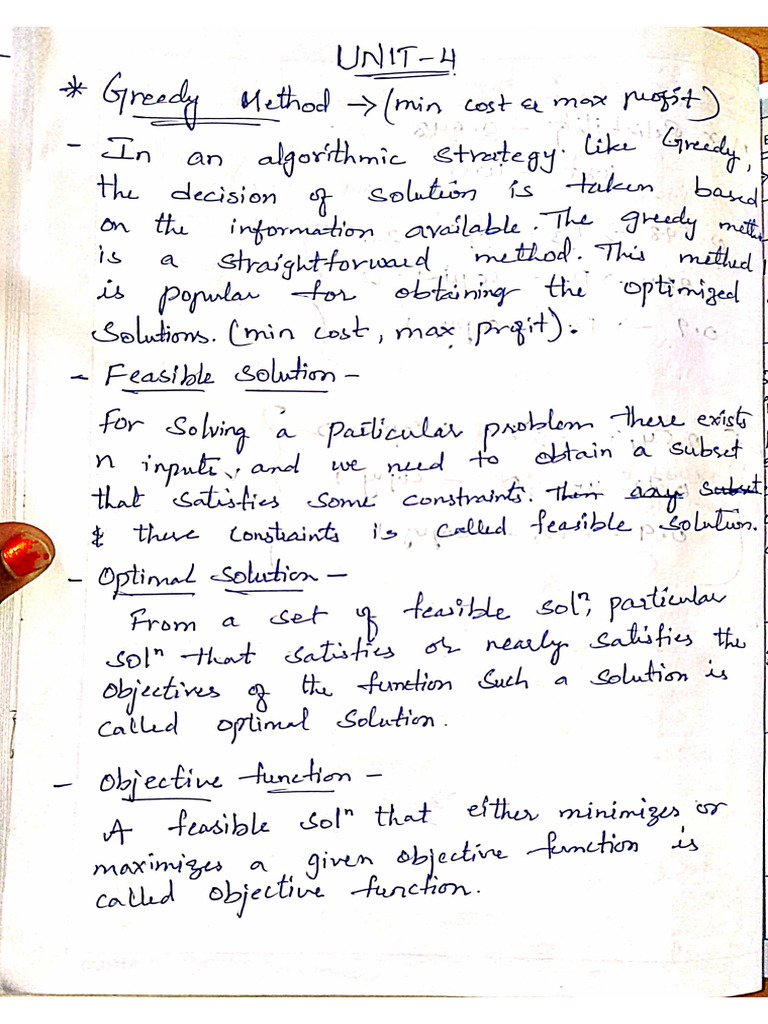 UNIT-4
* Greedy Method → (min cost & max profit)
- In an algorithmic strategy like Greedy,
the decision of solution is taken based
on the information available. The greedy metho
is a straightforward method. This method
is popular for obtaining the optimized
solutions. (min cost, max profit).
- Feasible solution -
for solving a particular problem there exists
n inputs, and we need to obtain a subset
that satisfies some constraints. Then any subset
& these constraints is called feasible solution.
- Optimal solution -
From a set of feasible solⁿ, particular
solⁿ that satisfies or nearly satisfies the
objectives of the function such a solution is
called optimal solution.
- Objective function -
A feasible solⁿ that either minimizes or
maximizes a given objective function is
called objective function.